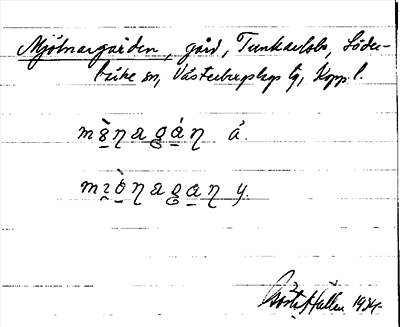 Mjölnargården, gård, Tunkarlsbo, Söder-
bärke sn, Västerbergslags tg, Kopp l.
mɜ̀ŋagáŋ ä.
mɪòŋagaŋ y.
Gösta Hallen 1934.